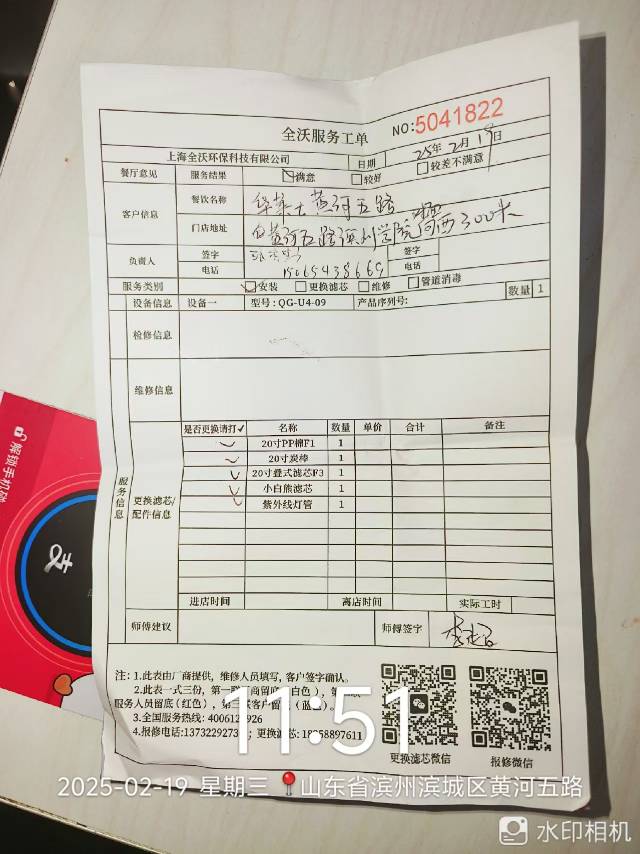 全沃服务工单 NO:5041822
上海全沃环保科技有限公司 日期 25年2月19日
餐厅意见 服务结果 满意 较好 较差不满意
客户信息 餐饮名称 华莱士黄河五路
门店地址 黄河五路滨州学院 西300米
负责人 签字 签字
电话 15065438669 电话
服务类别 安装 更换滤芯 维修 管道消毒
设备信息 设备一 型号:QG-U4-09 产品序列号: 数量 1
检修信息
维修信息
服务信息
更换滤芯/配件信息
是否更换请打✓ 名称 数量 单价 合计 备注
✓ 20寸PP棉F1 1
✓ 20寸炭棒 1
✓ 20寸叠式滤芯F3 1
✓ 小白熊滤芯 1
✓ 紫外线灯管 1
进店时间 离店时间 实际工时
师傅建议 师傅签字
注:1.此表由厂商提供,维修人员填写,客户签字确认。
2.此表一式三份,第一联 商留底(白色),第
服务人员留底(红色),第三联客户留 (蓝色)。
3.全国服务热线:4006
4.报修电话:1373229273 ;更换滤芯:18958897611
更换滤芯微信 报修微信
11:51
2025-02-19 星期三 山东省滨州滨城区黄河五路
水印相机
解锁手机
支